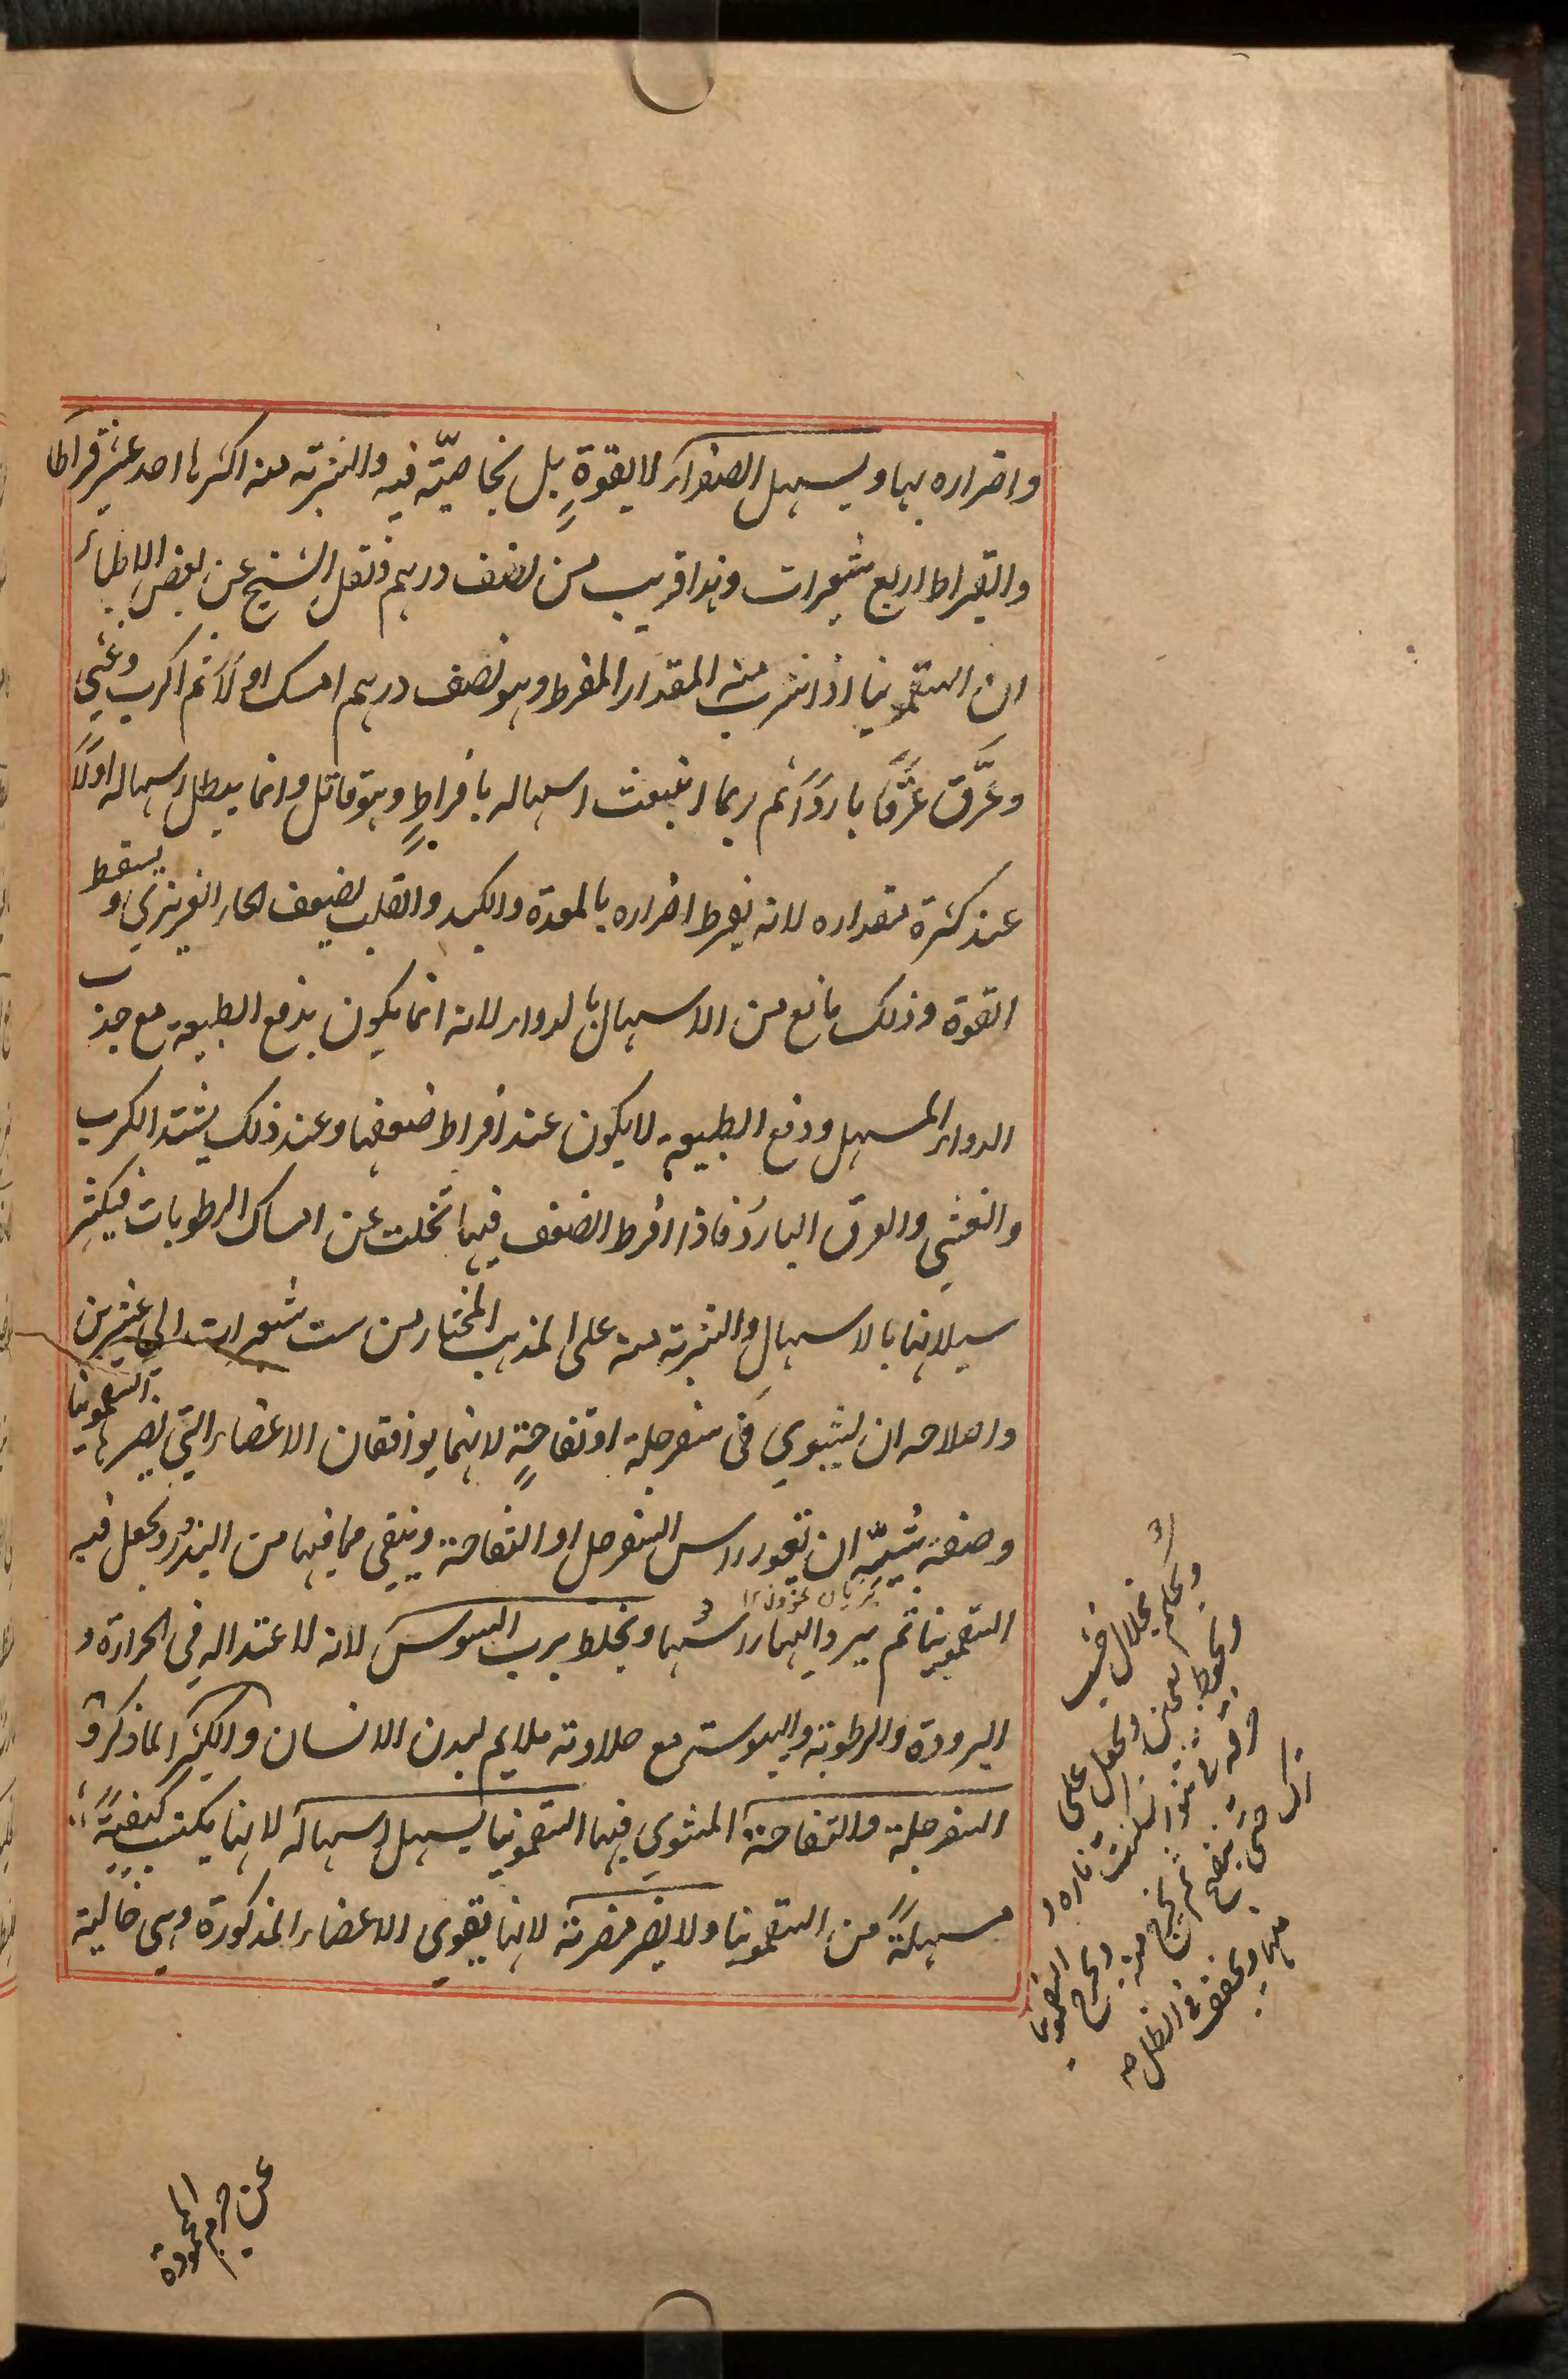 واضراره بها ويسهل الصفراء لا بقوةٍ بل بخاصيّته فيه والشربة منه اكثرها احد عشر قيراطا
والقيراط اربع شعيرات وهذا قريب من نصف درهم ونقل الشيخ عن بعض الاطباء
ان السقمونيا اذا شرب منه المقدار المفرط وهو نصف درهم امسك اولًا ثم اكرب وغثي
وعَرَّق عَرَقًا باردًا ثم ربما انبعث اسهاله بافراطٍ وهو قاتل وانما يبطل اسهاله اولًا
عند كثرة مقداره لانه يفرط اضراره بالمعدة والكبد والقلب لضعف الحار الغريزي و يسقط
القوة وذلك مانع من الاسهال بالدواء لانه انما يكون بدفع الطبيعة مع جذب
الدواء المسهل ودفع الطبيعة لا يكون عند افراط ضعفها وعند ذلك يشتد الكرب
والغثي والعرق البارد فاذا افرط الضعف فيها تخلت عن امساك الرطوبات فيكثر
سيلانها بالاسهال والشربة منه على المذهب المختار من ست شعيرات الى عشرين
واصلاحه ان يشوي في سفرجلة او تفاحةٍ لانهما يوافقان الاعضاء التي تضرها السقمونيا
وصفة شيّه ان تقور راس السفرجل او التفاحة وينقي مما فيها من البذور ويجعل فيه
السقمونيا ثم يرد اليها راسها ويخلط برب السوس لانه لاعتداله في الحرارة و
البرودة والرطوبة واليبوسة مع حلاوته ملايم لبدن الانسان والكثيرا لما ذكر و
السفرجلة والتفاحة المشوي فيها السقمونيا يسهل اسهاله لانها يكتسب كيفيةً
مسهلةً من السقمونيا ولا يضر مضرته لانها يقوي الاعضاء المذكورة وهي خالية
ويحكم بخلال خشب
ويلطخ بعجين ويجعل على
السقمونيا
ويجفف في الظل
عن جرم المحمودة